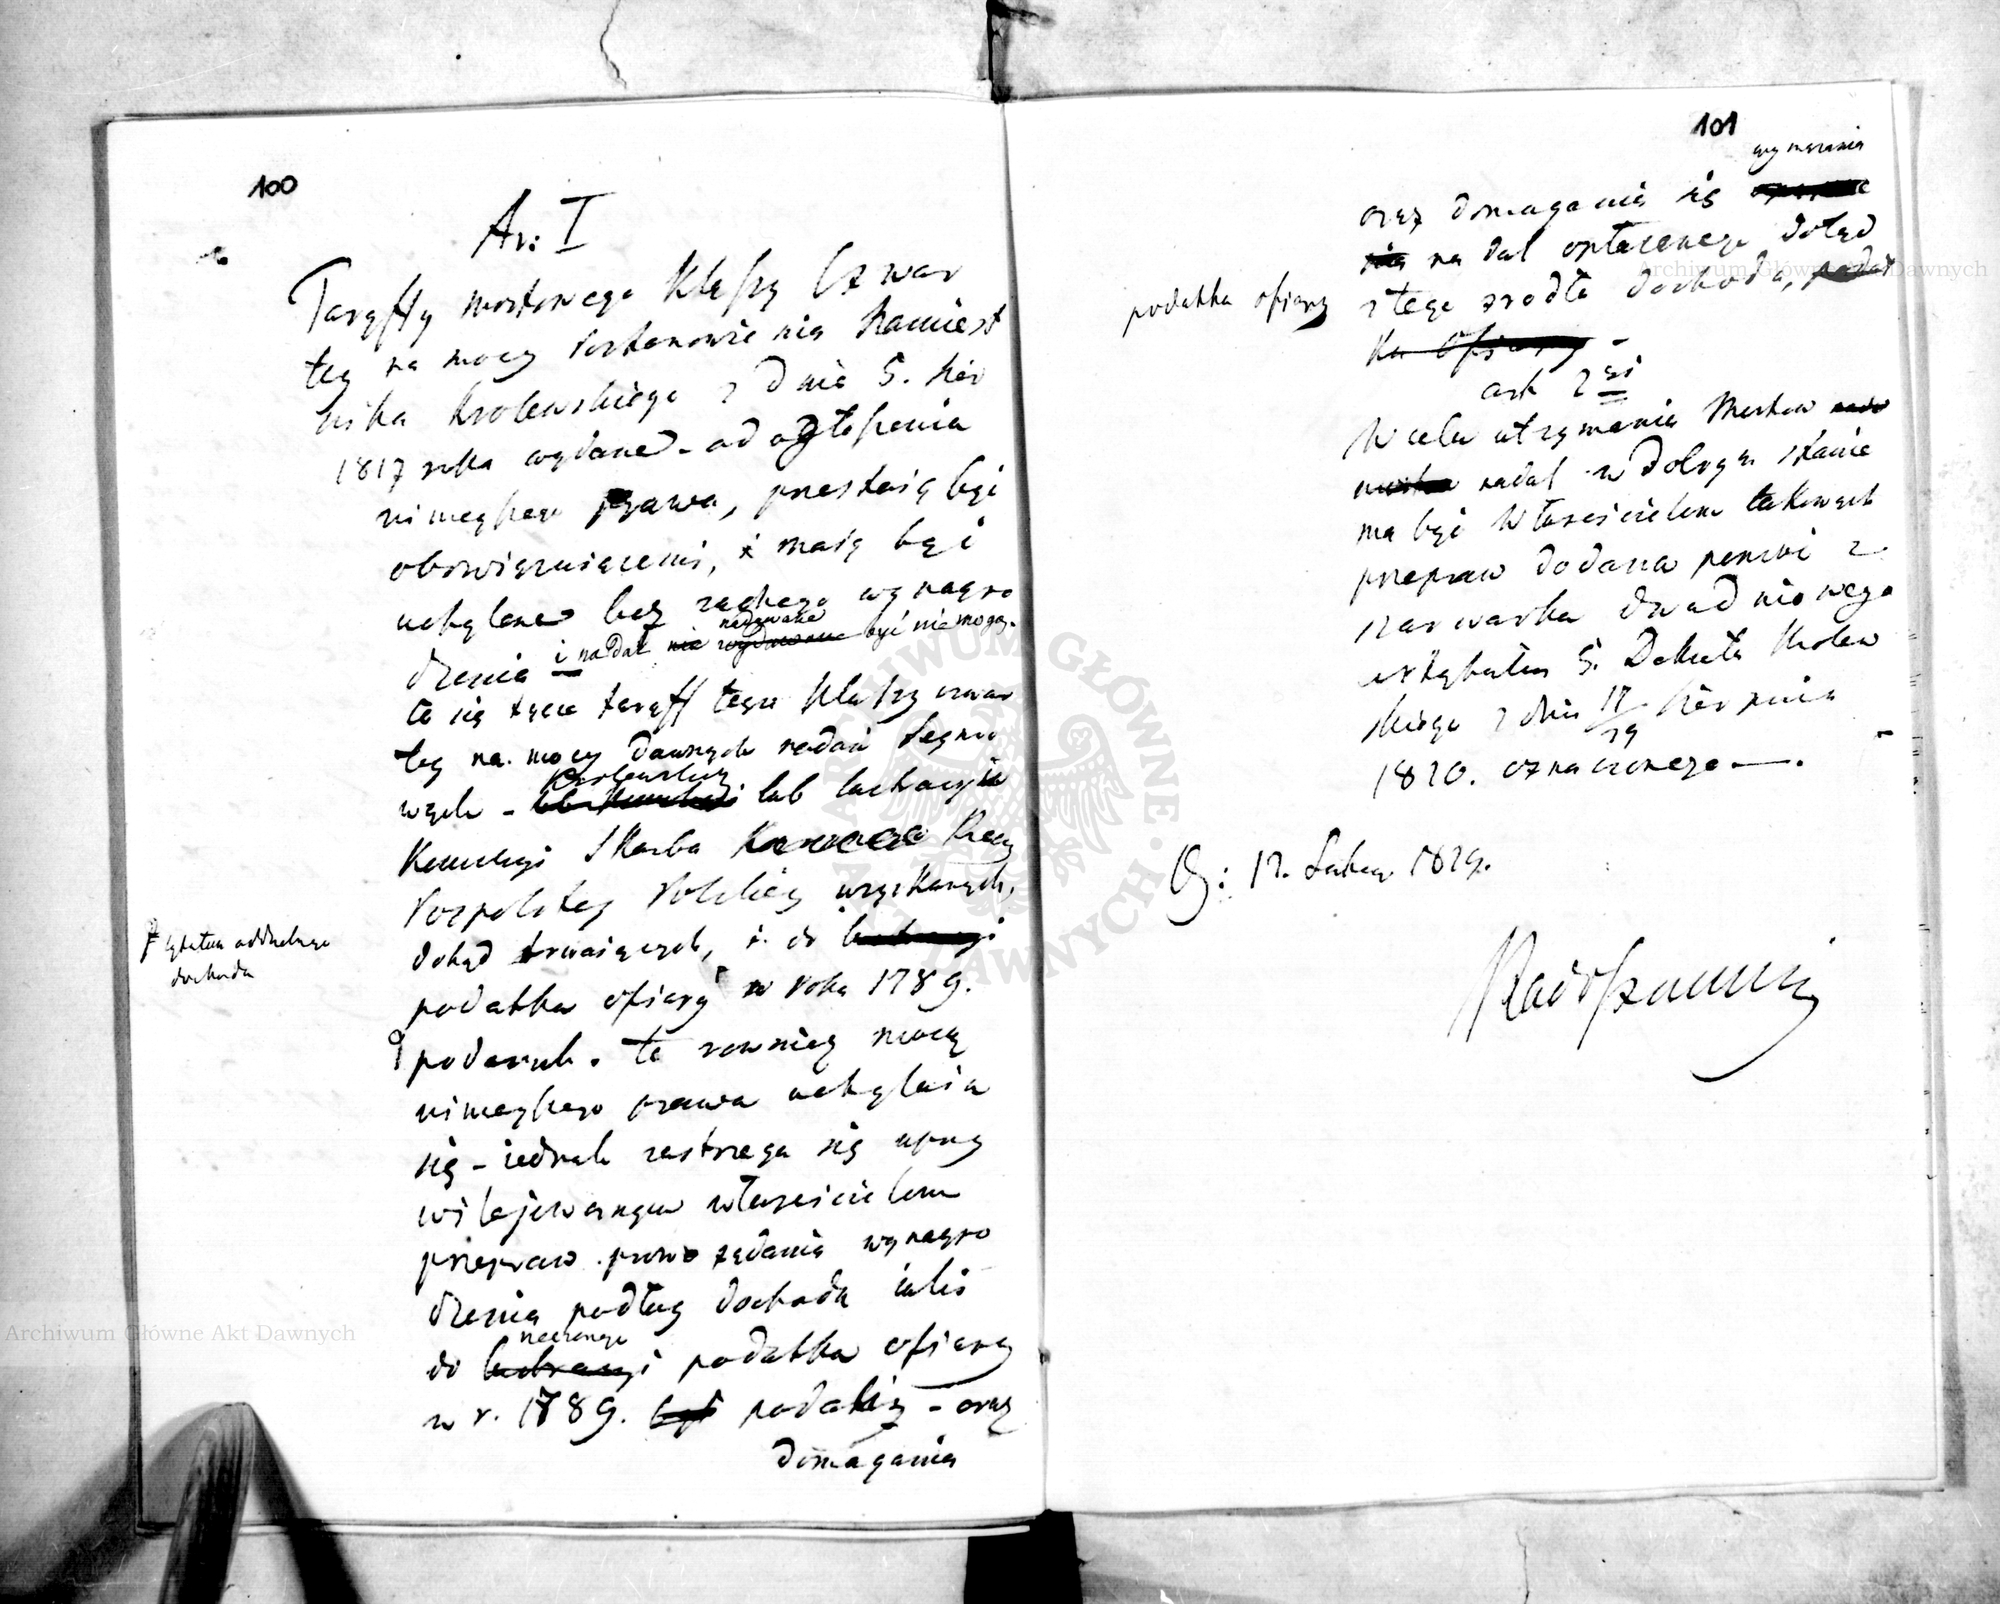 100
Ar: I
Taryffy mostowego Klassy Czwar
tey na mocy Postanowienia Namiest
nika Krolewskiego z dnia 5. Sier
1817 roku wydane - od ogłoszenia
ninieyszego prawa, przestaią być
obowiązuiącemi, i maią być
uchylone bez żadnego wynagro
dzenia i nadal nie nadawane być nie mogą.
to się tycze taryff teyże Klassy czwar
tey na mocy dawnych nadań Seymo
wych - Krolewskich lub lustracyia
Kommissyi Skarba Rzeczy
Pospolitey Polskiey uzyskanych,
dotąd trwaiących, i do
podatku ofiary w roku 1789.
# tytułem oddzielnego
dochodu
podanych. te rownież mocą
ninieyszego prawa uchylaią
się - iednak zastrzega się uprzy
wileiowanym właścicielom
przepraw prawo żądania wynagro
dzenia podług dochodu iaki
do rocznego podatku ofiary
w r. 1789. był podany - oraz
domagania
101
wymazania
oraz domagania się
nia na dal opłacanego dotąd
podatku ofiary z tego źrodła dochodu, podat
ku Ofiary -
art 2gi
W celu utrzymania Mostow
nadal w dobrym stanie
ma być Właścicielom takowych
przepraw dodana pomoc z
szarwarku dwudniowego
artykułem 5. Dekretu Krolew
skiego z dnia 17/29 Sierpnia
1820. oznaczonego —.
D: 12. Lutego 1829.
Radoszewski
Archiwum Główne Akt Dawnych
Archiwum Główne Akt Dawnych
ARCHIWUM GŁÓWNE AKT DAWNYCH